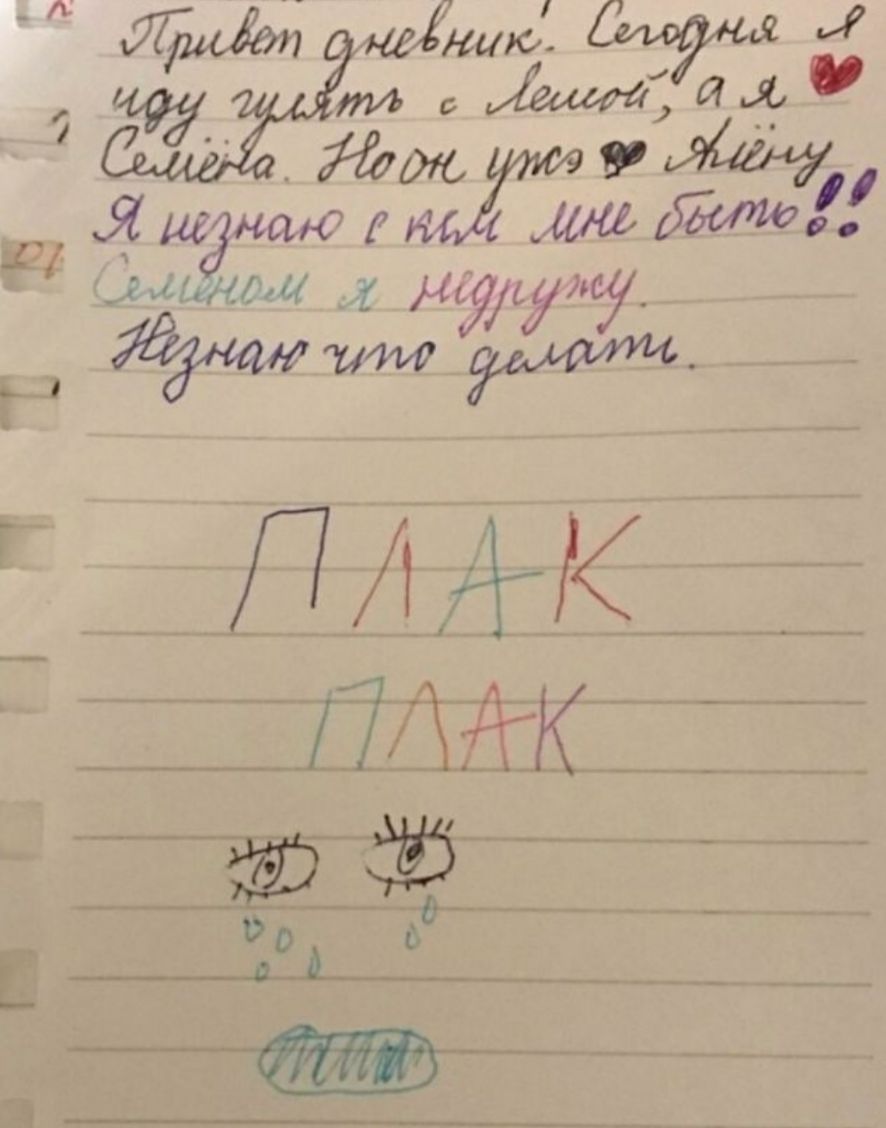 Привет дневник. Сегодня я
иду гулять с Лёшой, а я ❤
Семёна. Но он ужэ 🖤 Алёну
Я незнаю с кем мне быть!!
Семёном я недружу.
Незнаю что делать.
ПЛАК
ПЛАК